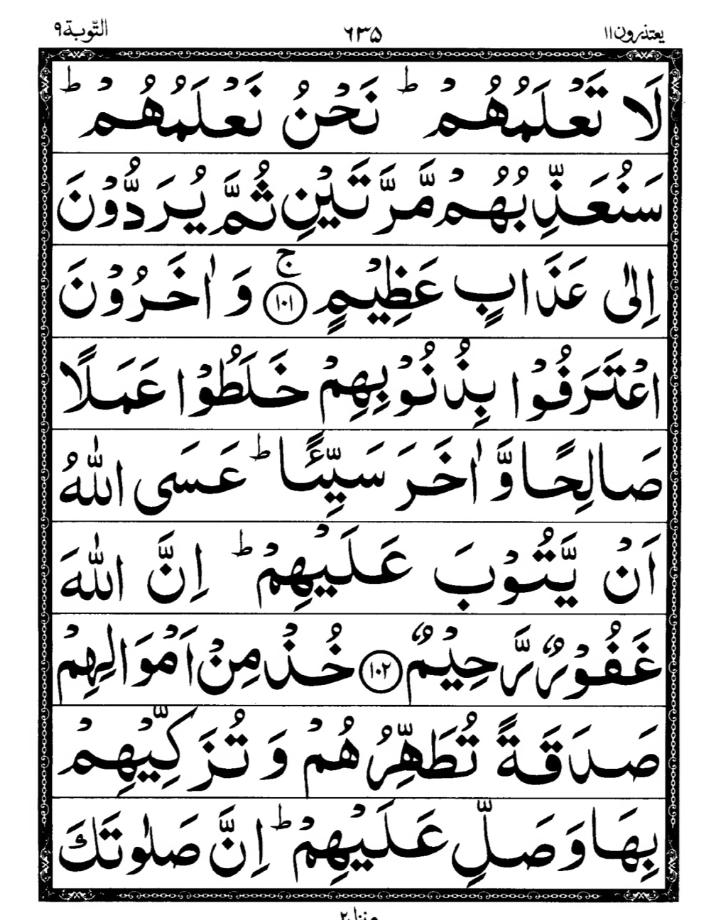 يعتذرون١١ ٦٣٥ التّوبة٩
لَا تَعْلَمُهُمْ ؕ نَحْنُ نَعْلَمُهُمْ ؕ
سَنُعَذِّبُهُمْ مَّرَّتَيْنِ ثُمَّ يُرَدُّوْنَ
اِلٰى عَذَابٍ عَظِيْمٍ ۚ﴿۱۰۱﴾ وَ اٰخَرُوْنَ
اعْتَرَفُوْا بِذُنُوْبِهِمْ خَلَطُوْا عَمَلًا
صَالِحًا وَّ اٰخَرَ سَيِّئًا ؕ عَسَى اللّٰهُ
اَنْ يَّتُوْبَ عَلَيْهِمْ ؕ اِنَّ اللّٰهَ
غَفُوْرٌ رَّحِيْمٌ ﴿۱۰۲﴾ خُذْ مِنْ اَمْوَالِهِمْ
صَدَقَةً تُطَهِّرُهُمْ وَ تُزَكِّيْهِمْ
بِهَا وَصَلِّ عَلَيْهِمْ ؕ اِنَّ صَلٰوتَكَ
منزل٢